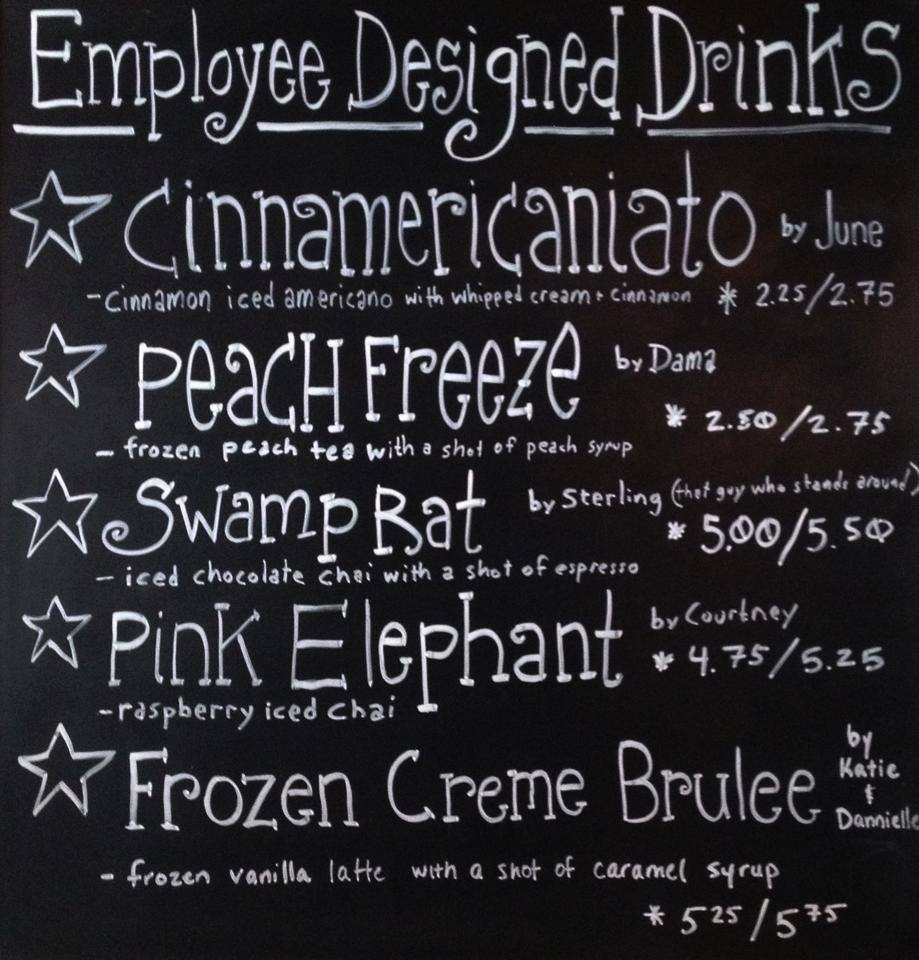 Employee Designed Drinks
Cinnamericaniato by June
-cinnamon iced americano with whipped cream + cinnamon * 2.25/2.75
Peach Freeze by Dama
* 2.50/2.75
- frozen peach tea with a shot of peach syrup
Swamp Rat by Sterling (that guy who stands around)
* 5.00/5.50
- iced chocolate chai with a shot of espresso
Pink Elephant by Courtney
* 4.75/5.25
-raspberry iced chai
Frozen Creme Brulee by Katie & Dannielle
- frozen vanilla latte with a shot of caramel syrup
* 5 25/5 75